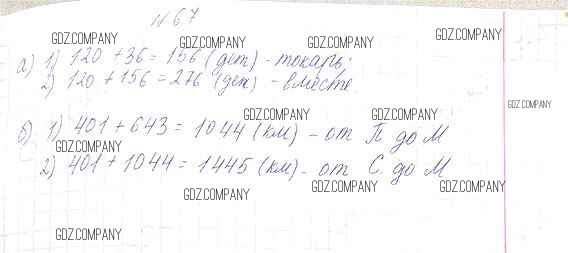 № 67
GDZ.COMPANY GDZ.COMPANY GDZ.COMPANY GDZ.COMPANY
а) 1) 120 + 36 = 156 (дет) - токарь;
2) 120 + 156 = 276 (дет) - вместе.
GDZ.COMPANY
GDZ.COMPANY GDZ.COMPANY
б) 1) 401 + 643 = 1044 (км) - от П до М
GDZ.COMPANY
2) 401 + 1044 = 1445 (км) - от С. до М
GDZ.COMPANY GDZ.COMPANY GDZ.COMPANY
GDZ.COMPANY